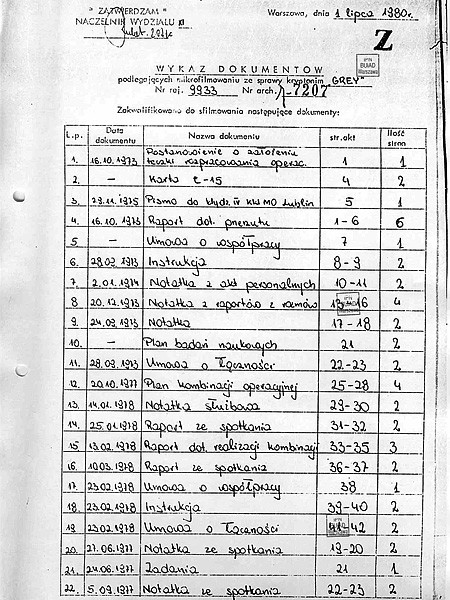 " ZATWIERDZAM "
NACZELNIK WYDZIAŁU XI
Warszawa, dnia 1 lipca 1980 r.
Z
IPN
BUiAD
Warszawa
WYKAZ DOKUMENTÓW
podlegających mikrofilmowaniu ze sprawy kryptonim "GREY"
Nr rej. 9933 Nr arch. J-7207
Zakwalifikowano do sfilmowania następujące dokumenty:
L.p. Data dokumentu Nazwa dokumentu str.akt Ilość stron
1. 16.10.1973 Postanowienie o założeniu teczki rozpracowania operac. 1 1
2. — Karta E-15 4 2
3. 29.11.1975 Pismo do Wydz. IV KWMO Lublin 5 1
4. 16.10.1973 Raport dot. przerzutu 1-6 6
5 — Umowa o współpracy 7 1
6. 28.09.1973 Instrukcja 8-9 2
7. 2.01.1974 Notatka z akt personalnych 10-11 2
8 20.12.1973 Notatka z raportów z rozmów 13-16 4
9. 24.09.1973 Notatka 17-18 2
10. — Plan badań naukowych 21 2
11. 28.09.1973 Umowa o łączności 22-23 2
12. 20.10.1977 Plan kombinacji operacyjnej 25-28 4
13. 14.01.1978 Notatka służbowa 29-30 2
14. 25.01.1978 Raport ze spotkania 31-32 2
15 13.02.1978 Raport dot. realizacji kombinacji 33-35 3
16. 10.03.1978 Raport ze spotkania 36-37 2
17. 23.02.1978 Umowa o współpracy 38 1
18. 23.02.1978 Instrukcja 39-40 2
19. 23.02.1978 Umowa o łączności 41-42 2
20. 27.06.1977 Notatka ze spotkania 19-20 2
21. 24.06.1977 Zadania 21 1
22. 5.09.1977 Notatka ze spotkania 22-23 2